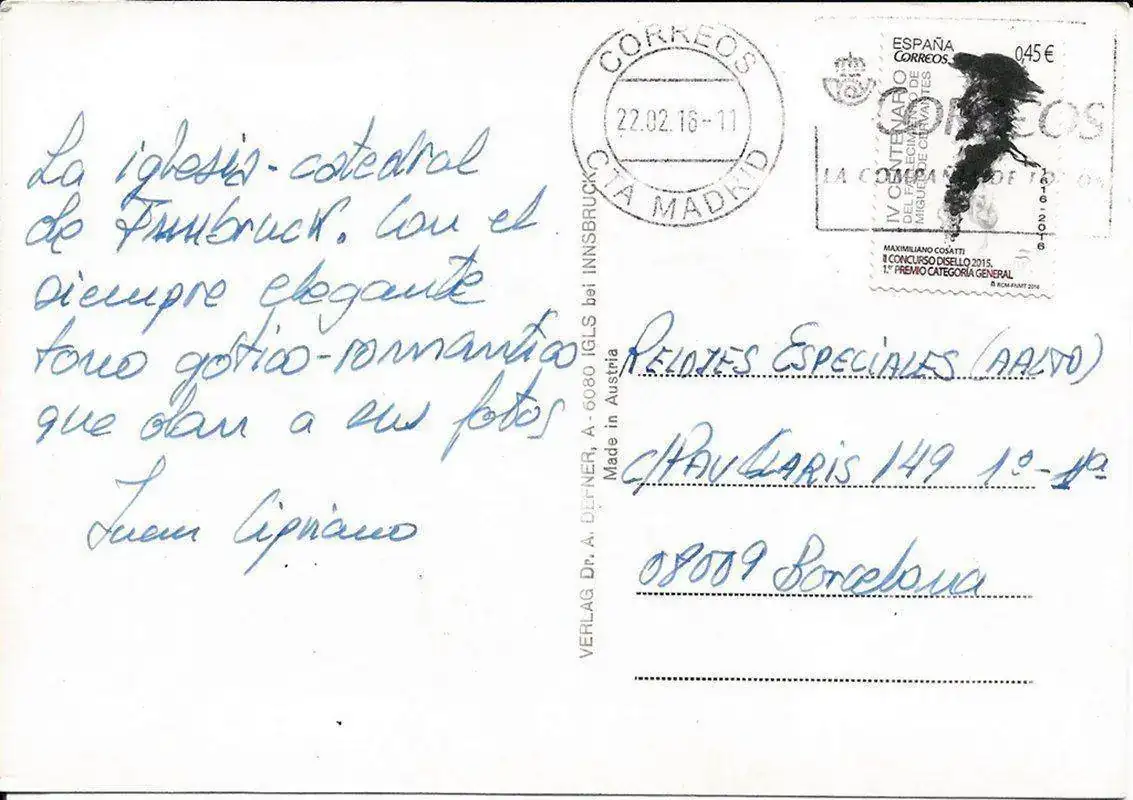 La iglesia-catedral
de Innsbruck. Con el
siempre elegante
tono gótico-romantico
que dan a sus fotos
Juan Cipriano
VERLAG Dr. A. DEFNER, A-6080 IGLS bei INNSBRUCK
Made in Austria
CORREOS
22.02.16-11
CTA MADRID
ESPAÑA
CORREOS
0,45 €
IV CENTENARIO
DEL FALLECIMIENTO DE
MIGUEL DE CERVANTES
1616-2016
CORREOS
LA COMPAÑÍA DE TODOS
MAXIMILIANO COSATTI
II CONCURSO DISELLO 2015.
1.er PREMIO CATEGORÍA GENERAL
RCM-FNMT 2016
RELOJES ESPECIALES (AALTO)
C/PAU CLARIS 149 1º-1ª
08009 Barcelona